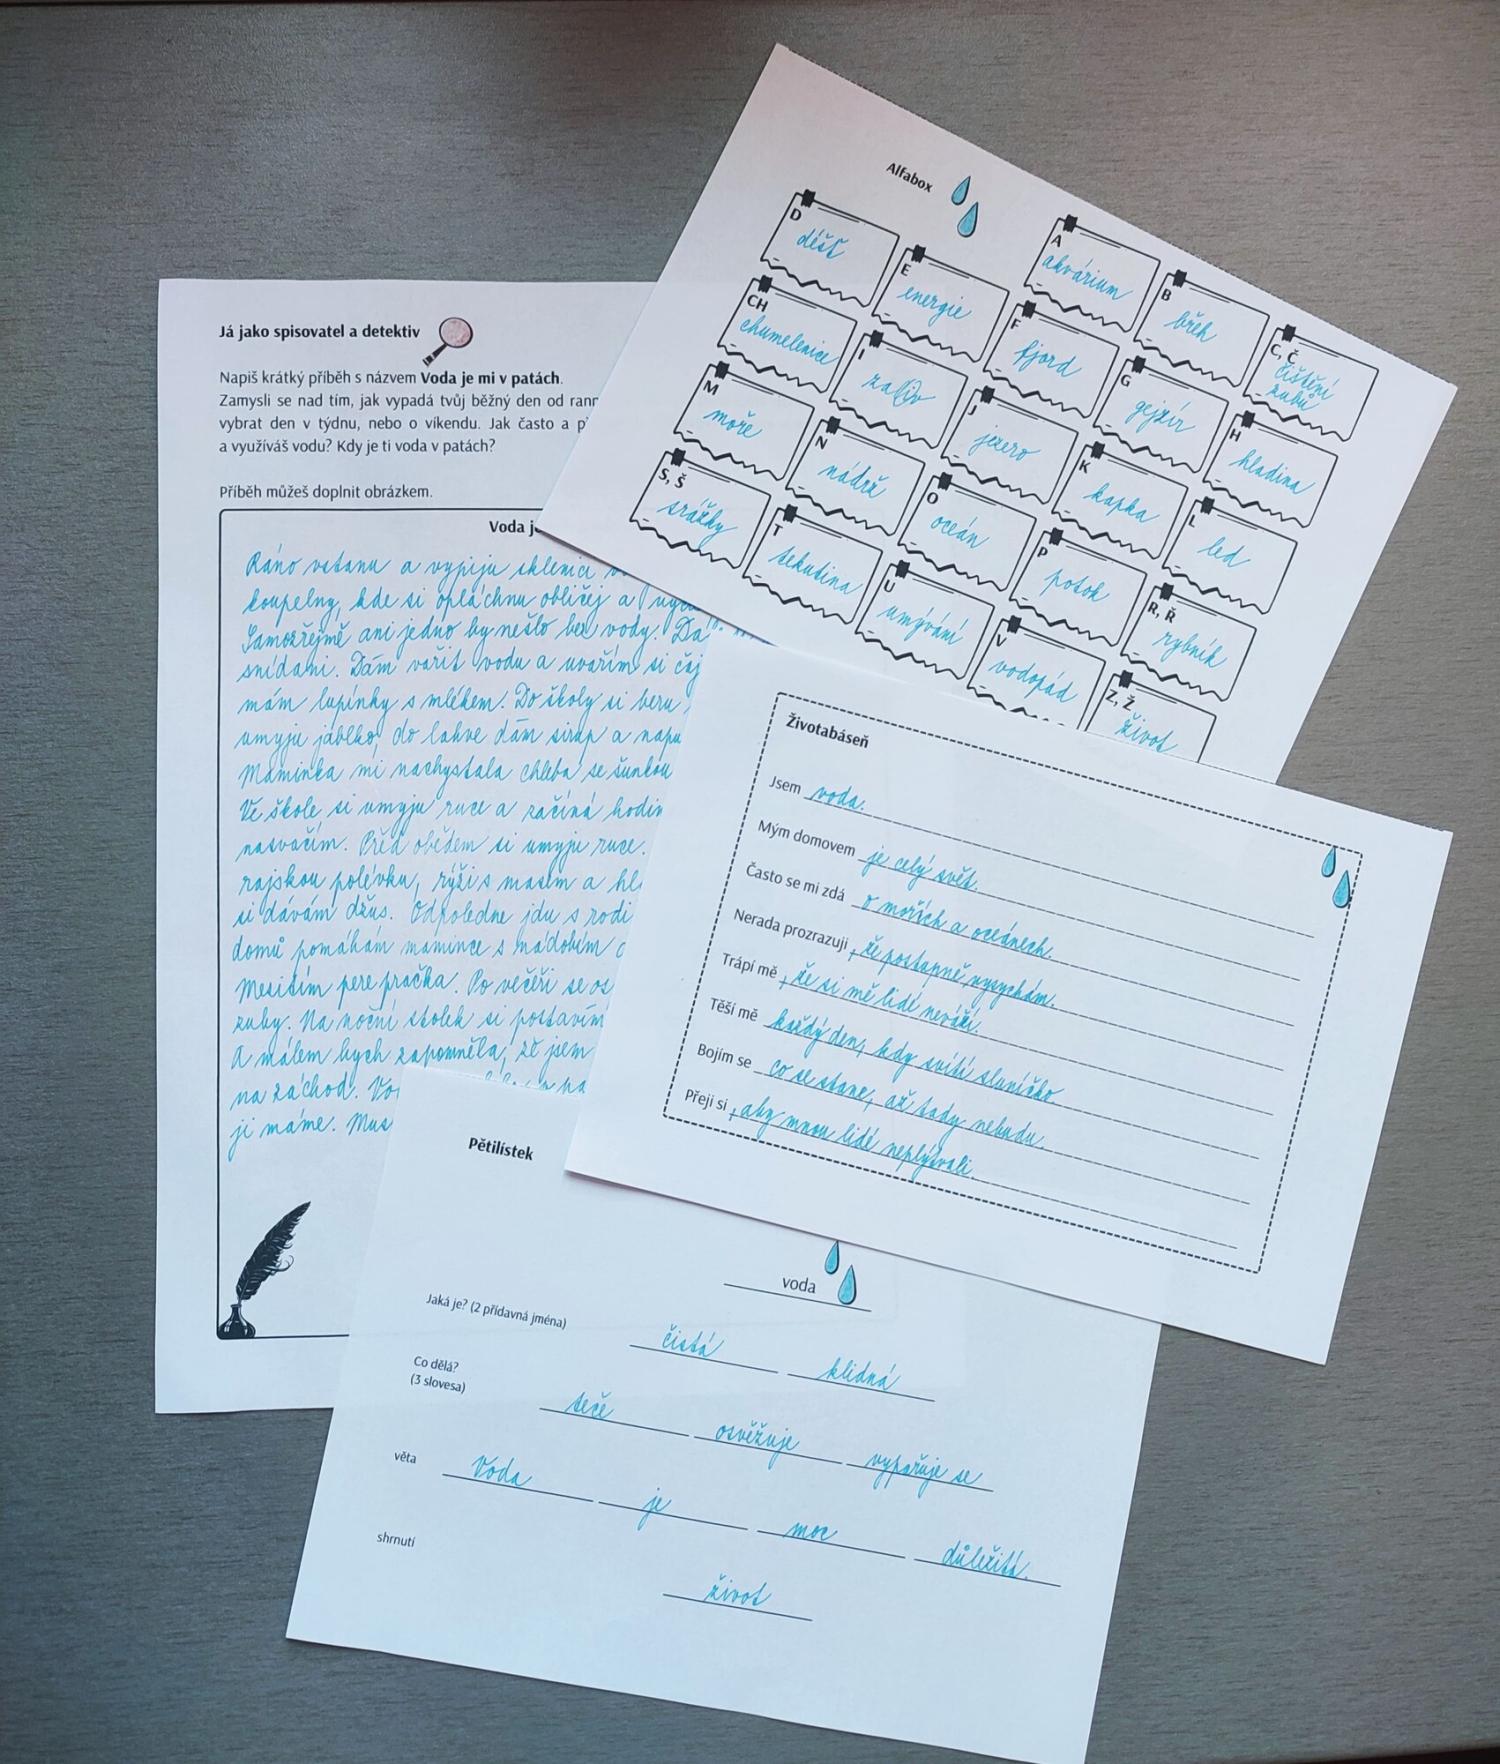 Já jako spisovatel a detektiv
Napiš krátký příběh s názvem Voda je mi v patách.
Zamysli se nad tím, jak vypadá tvůj běžný den od rann
vybrat den v týdnu, nebo o víkendu. Jak často a p
a využíváš vodu? Kdy je ti voda v patách?
Příběh můžeš doplnit obrázkem.
Voda je
Ráno vstanu a vypiju sklenici
koupelny, kde si opláchnu obličej a
Samozřejmě ani jedno by nešlo bez vody.
snídani. Dám vařit vodu a uvařím si čaj
mám lupínky s mlékem. Do školy si beru
umyju jablko, do lahve dám sirup a napu
Maminka mi nachystala chleba se šunkou
Ve škole si umyju ruce a začíná hodin
nasvačím. Před obědem si umyju ruce.
rajskou polévku, rýži s masem a hl
si dávám džus. Odpoledne jdu s rodi
domů pomáhám mamince s nádobím
Mezitím pere pračka. Po večeři se os
zuby. Na noční stolek si postavím
A málem bych zapomněla, že jsem
na záchod.
ji máme. Mus
Alfabox
A
akvárium
B
břeh
C, Č
čištění
zubů
D
déšť
E
energie
F
fjord
G
gejzír
H
hladina
CH
chumelenice
I
zaliv
J
jezero
K
kapka
L
led
M
moře
N
nádrž
O
oceán
P
potok
R, Ř
rybník
S, Š
srážky
T
tekutina
U
umývání
V
vodopád
Z, Ž
život
Životabáseň
Jsem voda.
Mým domovem je celý svět.
Často se mi zdá o mořích a oceánech.
Nerada prozrazuji, že postupně vysychám.
Trápí mě, že si mě lidé neváží.
Těší mě každý den, kdy svítí sluníčko.
Bojím se co se stane, až tady nebudu.
Přeji si, aby mnou lidé neplýtvali.
Pětilístek
voda
Jaká je? (2 přídavná jména)
čistá klidná
Co dělá?
(3 slovesa)
teče osvěžuje vypařuje se
věta
Voda je moc důležitá.
shrnutí
život